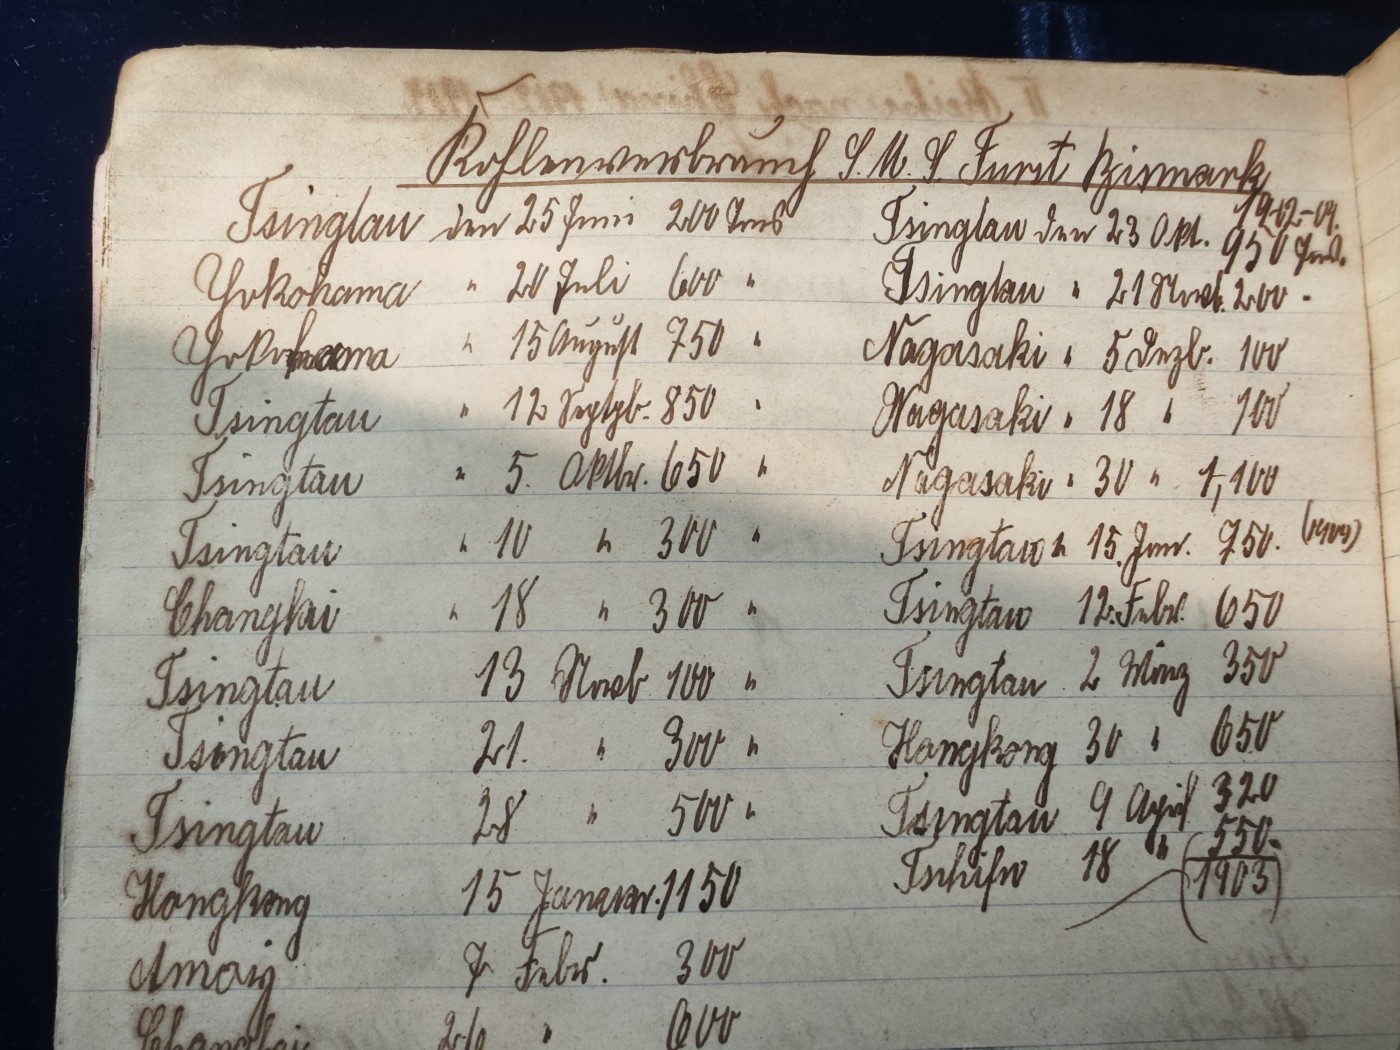 Kohlenverbrauch S.M.S. Fürst Bismark
1902-04.
Tsingtau den 25 Juni 200 Tons
Yokohama " 20 Juli 600 "
Yokohama " 15 August 750 "
Tsingtau " 12 Septbr. 850 "
Tsingtau " 5. Oktbr. 650 "
Tsingtau " 10 " 300 "
Changhai " 18 " 300 "
Tsingtau 13 Novb 100 "
Tsingtau 21. " 300 "
Tsingtau 28 " 500 "
Hongkong 15 Januar. 1150
Amoy 7 Febr. 300
Changhai 26 " 600
Tsingtau den 23 Okt. 950 Tons.
Tsingtau " 21 Novb. 200 "
Nagasaki " 5 Dezb. 100
Nagasaki " 18 " 100
Nagasaki " 30 " 1,100
Tsingtau " 15. Jan. 750.
Tsingtau 12. Febr. 650
Tsingtau 2 März 350
Hongkong 30 " 650
Tsingtau 9 April 320
Tschifu 18 " 550.
(1903)